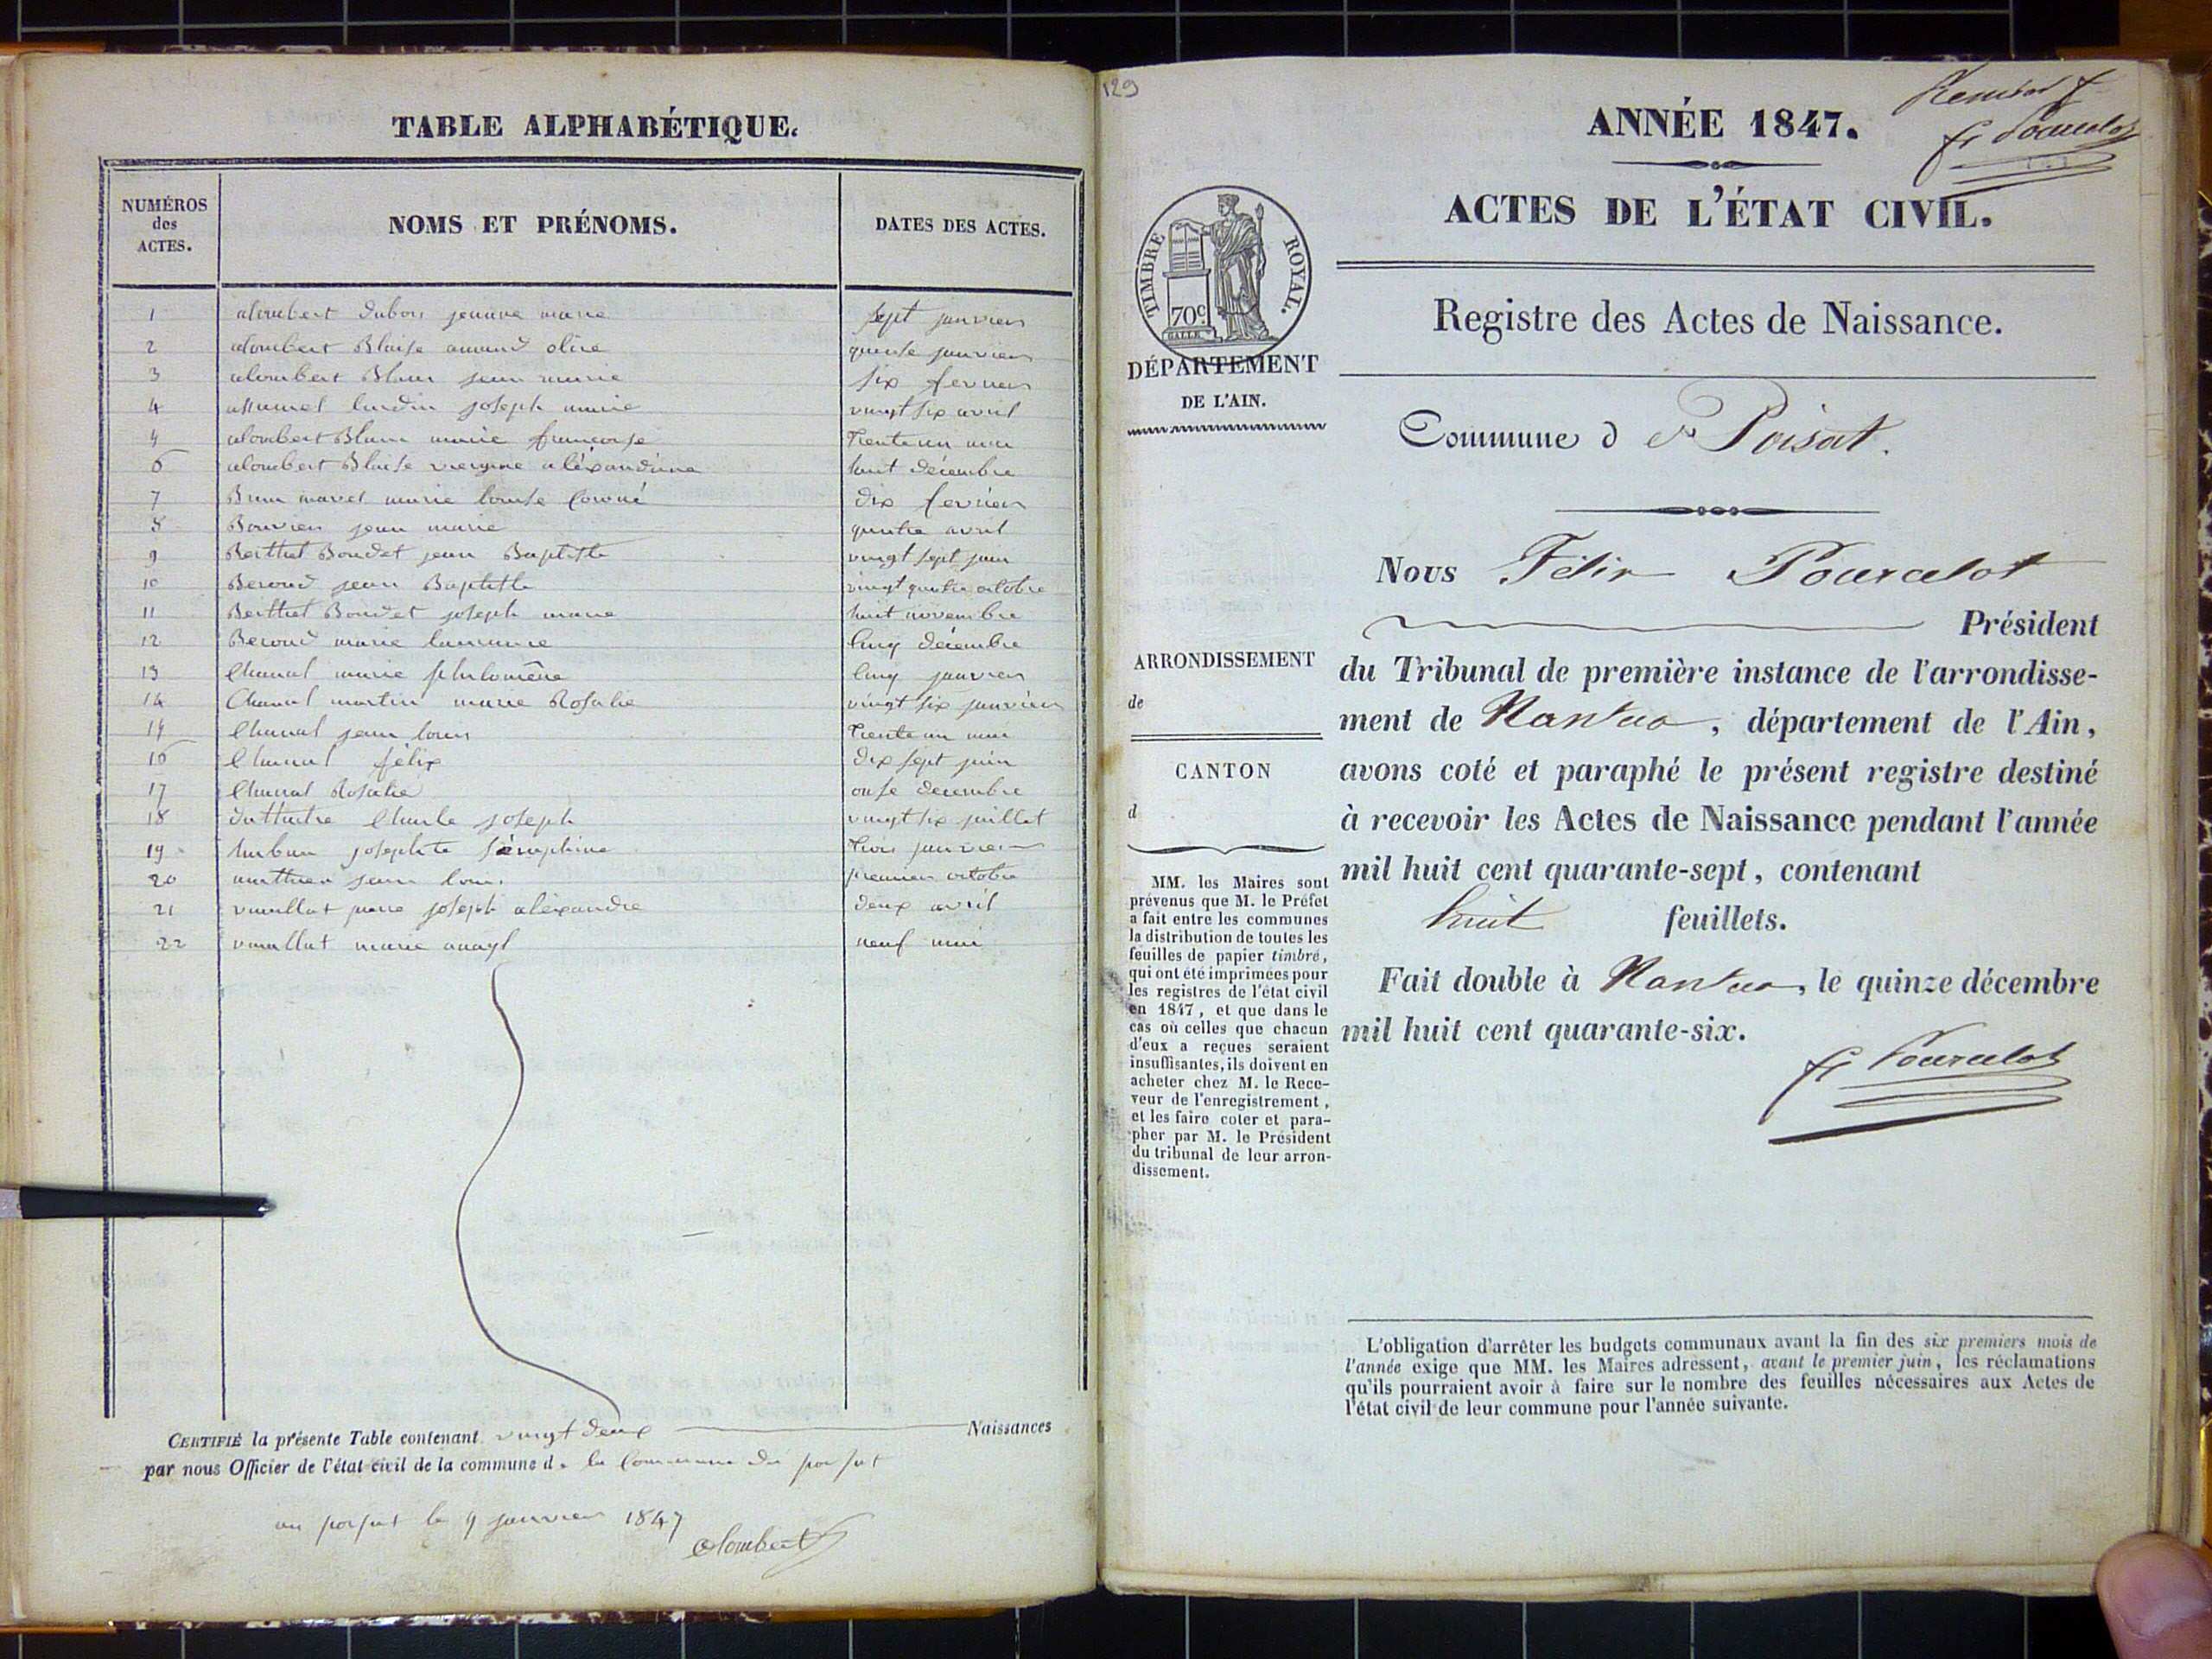 TABLE ALPHABÉTIQUE.
NUMÉROS des ACTES.
NOMS ET PRÉNOMS.
DATES DES ACTES.
1 alombert dubois marie sept janvier
2 alombert Blaise amand janvier
3 alombert jean marie six fevrier
4 joseph marie vingt six avril
alombert marie francoise Trente un mai
6 alombert Blaise aléxandrine huit décembre
7 Brun marie louise dix fevrier
8 Bouvier jean marie quatre avril
9 Berthet Boudet jean Baptiste vingt sept juin
10 Beroud jean Baptiste vingt quatre octobre
11 Berthet Boudet joseph marie huit novembre
12 Beroud marie cinq décembre
13 Chanal marie philomène cinq janvier
14 Chanal martin marie Rosalie vingt six janvier
Chanal jean louis Trente un mai
16 Chanal félix dix sept juin
17 Chanal Rosalie onse decembre
18 Charle joseph vingt six juillet
19 josephte séraphine Trois janvier
20 mathieu jean louis premier octobre
21 vuaillat joseph aléxandre deux avril
22 vuaillat marie neuf mai
CERTIFIÉ la présente Table contenant vingt deux Naissances
par nous Officier de l'état civil de la commune d. la Commune du poisat
au poisat le janvier 1847
Alombert
129
ANNÉE 1847.
F. Pourcelot
ACTES DE L'ÉTAT CIVIL.
Registre des Actes de Naissance.
TIMBRE ROYAL.
70c
DÉPARTEMENT
DE L'AIN.
Commune d Poisat.
Nous Félix Pourcelot
Président
du Tribunal de première instance de l'arrondisse-
ment de Nantua, département de l'Ain,
avons coté et paraphé le présent registre destiné
à recevoir les Actes de Naissance pendant l'année
mil huit cent quarante-sept, contenant
huit feuillets.
Fait double à Nantua, le quinze décembre
mil huit cent quarante-six.
F. Pourcelot
ARRONDISSEMENT
de
CANTON
d
MM. les Maires sont
prévenus que M. le Préfet
a fait entre les communes
la distribution de toutes les
feuilles de papier timbré,
qui ont été imprimées pour
les registres de l'état civil
en 1847, et que dans le
cas où celles que chacun
d'eux a reçues seraient
insuffisantes, ils doivent en
acheter chez M. le Rece-
veur de l'enregistrement,
et les faire coter et para-
pher par M. le Président
du tribunal de leur arron-
dissement.
L'obligation d'arrêter les budgets communaux avant la fin des six premiers mois de
l'année exige que MM. les Maires adressent, avant le premier juin, les réclamations
qu'ils pourraient avoir à faire sur le nombre des feuilles nécessaires aux Actes de
l'état civil de leur commune pour l'année suivante.